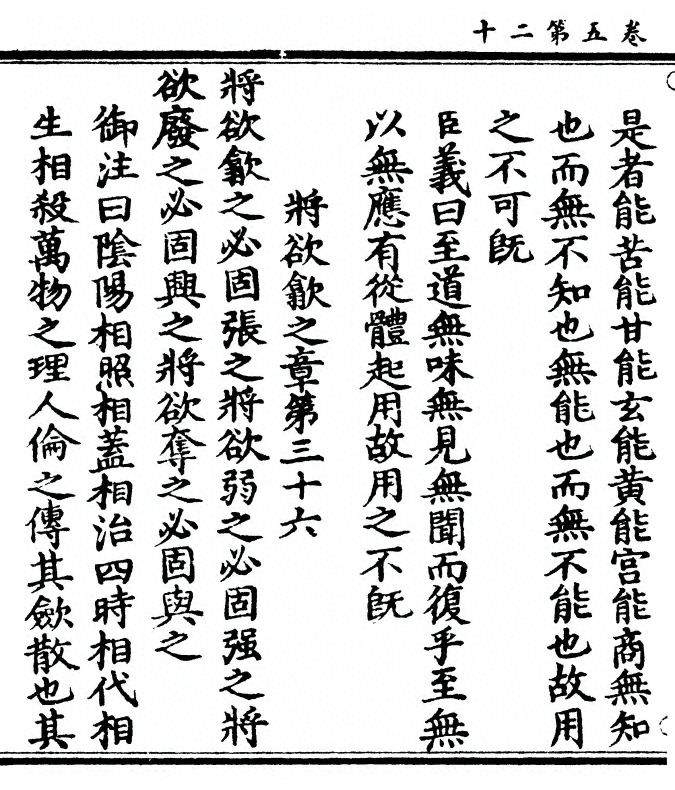 卷五第二十
是者能苦能甘能玄能黄能宫能商無知
也而無不知也無能也而無不能也故用
之不可旣
臣義曰至道無味無見無聞而復乎至無
以無應有從體起用故用之不旣
將欲歙之章第三十六
將欲歙之必固張之將欲弱之必固强之將
欲廢之必固興之將欲奪之必固與之
御注曰陰陽相照相蓋相治四時相代相
生相殺萬物之理人倫之傳其歛散也其